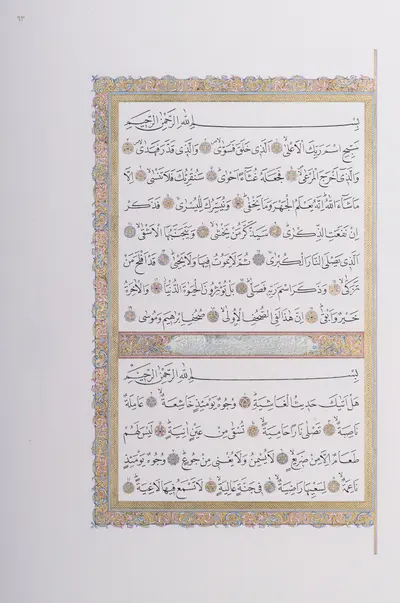 ٦٣
بسم الله الرحمن الرحيم
سبح اسم ربك الأعلى الذي خلق فسوى والذي قدر فهدى
والذي أخرج المرعى فجعله غثاء أحوى سنقرئك فلا تنسى إلا
ما شاء الله إنه يعلم الجهر وما يخفى ونيسرك لليسرى فذكر
إن نفعت الذكرى سيذكر من يخشى ويتجنبها الأشقى
الذي يصلى النار الكبرى ثم لا يموت فيها ولا يحيى قد أفلح من
تزكى وذكر اسم ربه فصلى بل تؤثرون الحيوة الدنيا والآخرة
خير وأبقى إن هذا لفي الصحف الأولى صحف إبرهيم وموسى
بسم الله الرحمن الرحيم
هل أتيك حديث الغاشية وجوه يومئذ خاشعة عاملة
ناصبة تصلى نارا حامية تسقى من عين آنية ليس لهم
طعام إلا من ضريع لا يسمن ولا يغني من جوع وجوه يومئذ
ناعمة لسعيها راضية في جنة عالية لا تسمع فيها لاغية